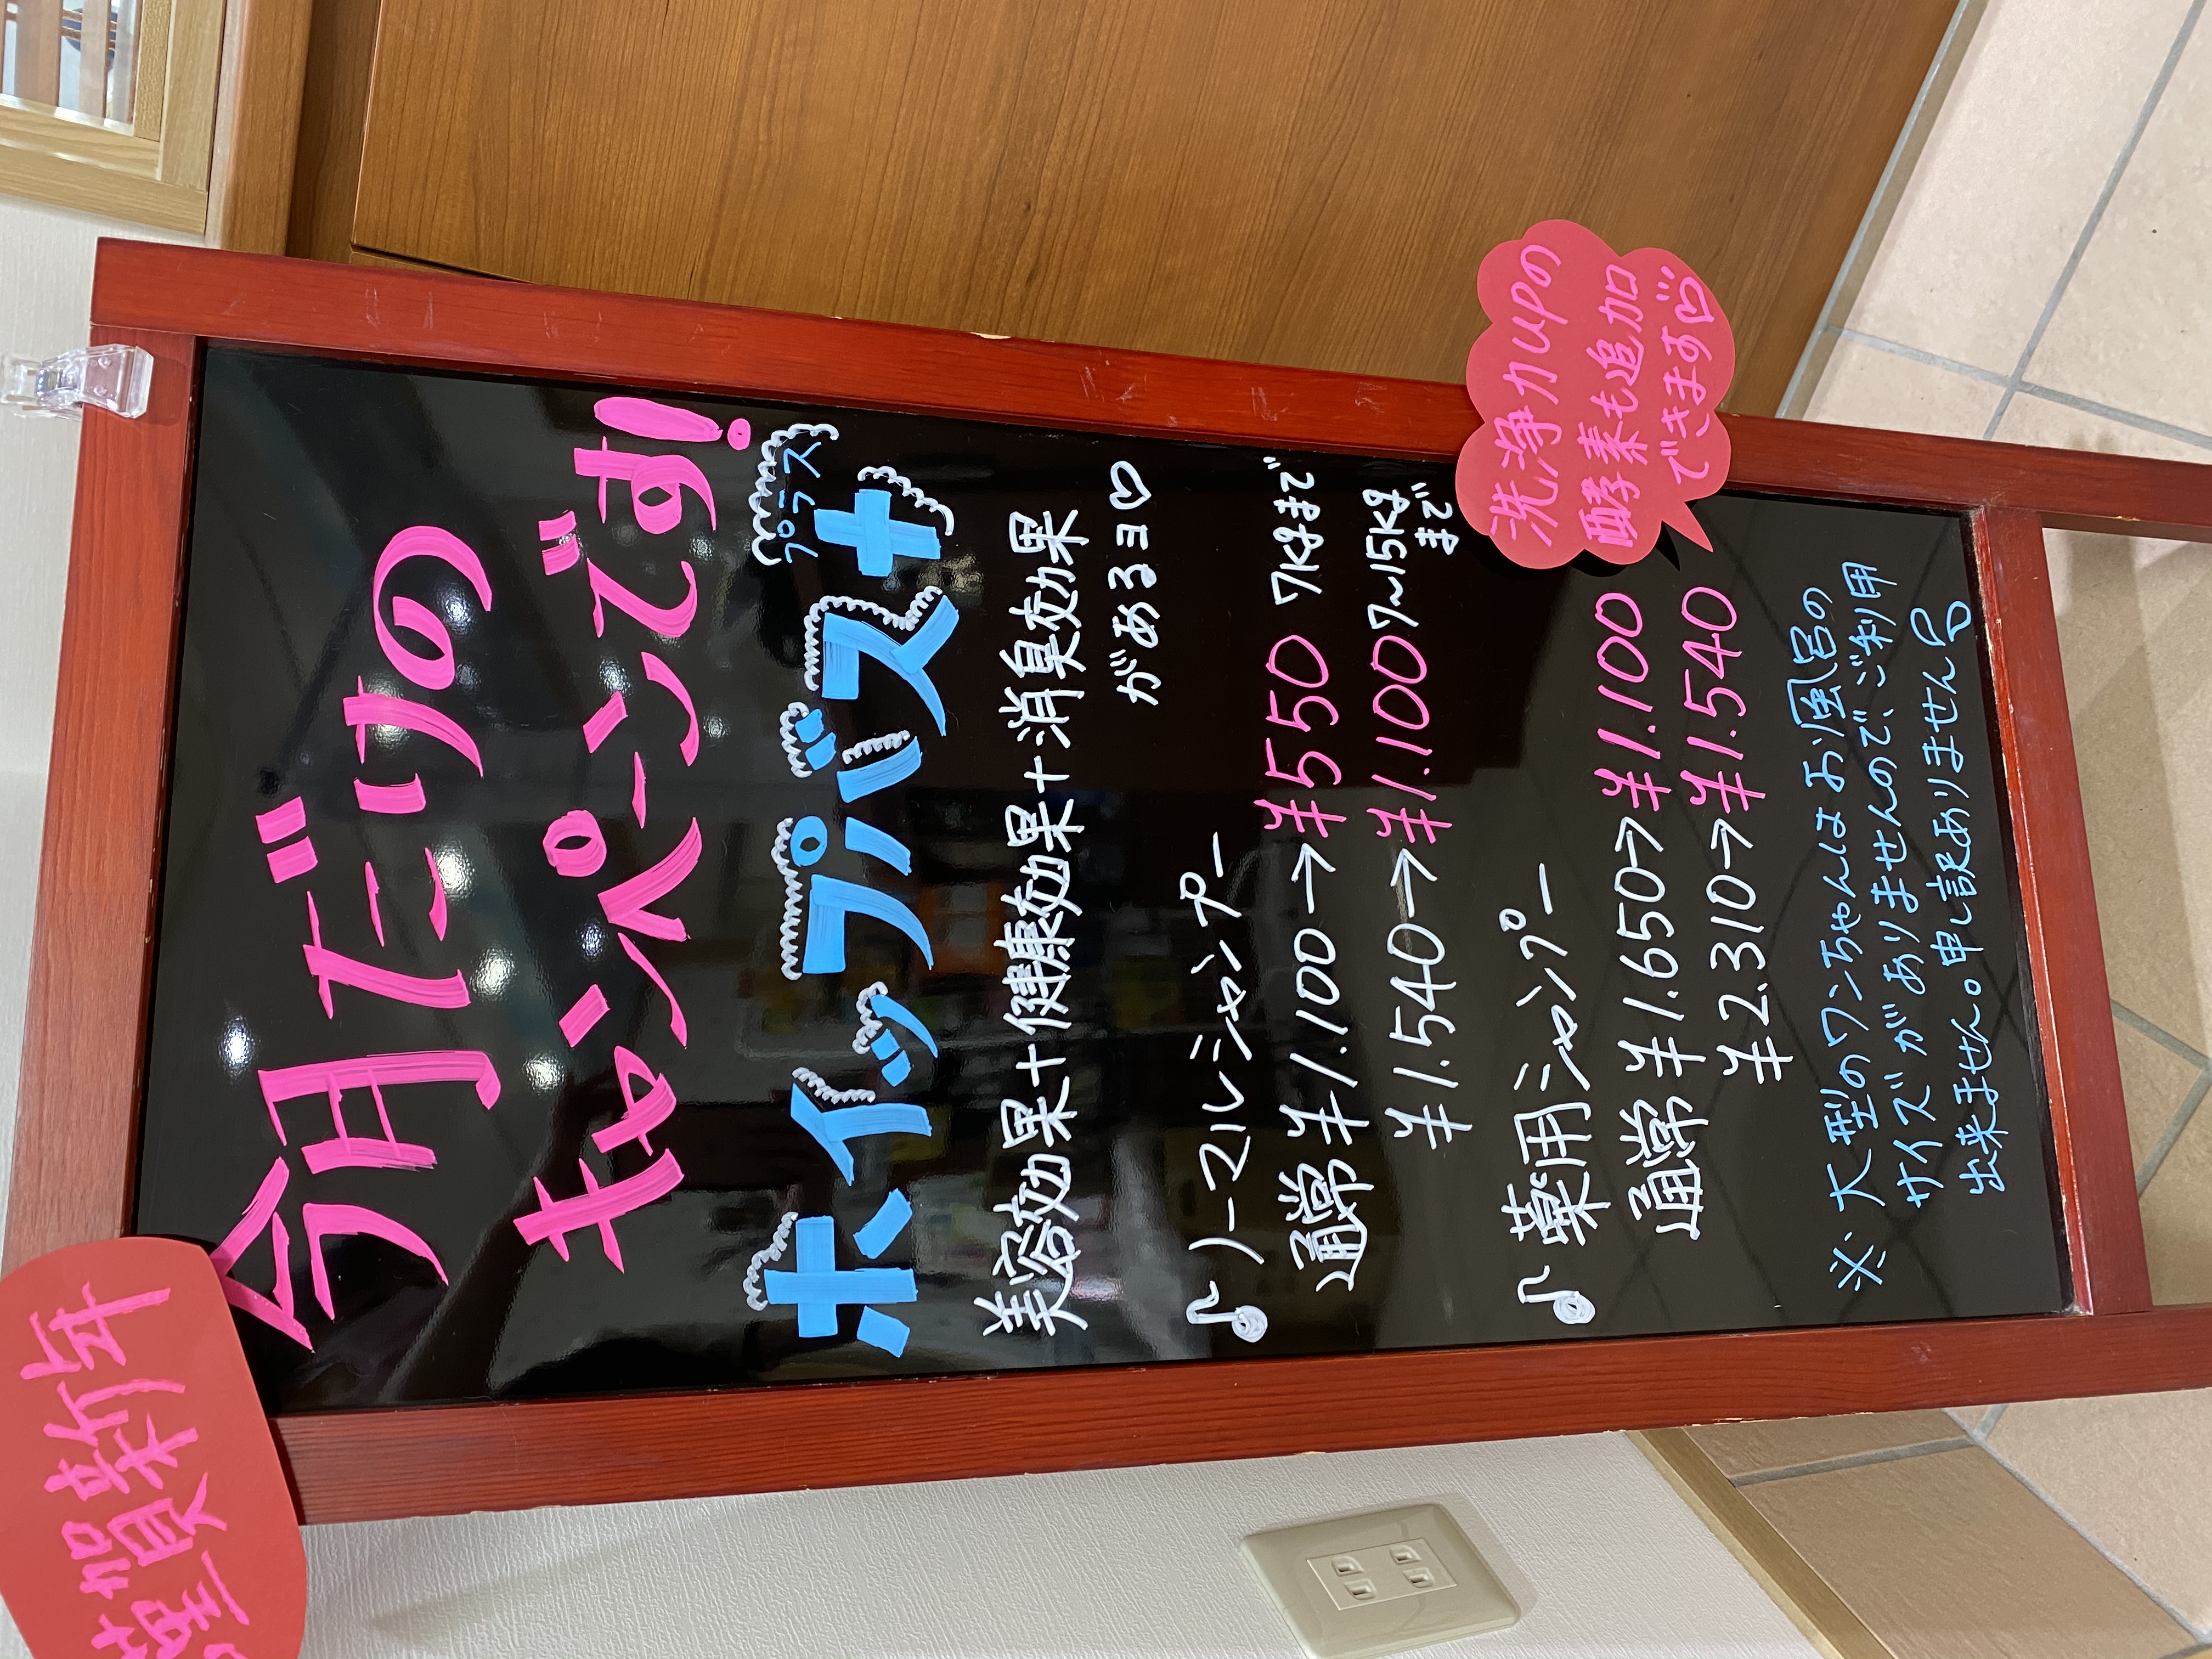 謹賀新年
今月だけの
キャンペーンです!
ホイップバス+
プラス
美容効果+健康効果+消臭効果
があるヨ♡
♪ノーマルシャンプー
通常¥1.100→¥550 7kgまで
¥1.540→¥1.100 7~15kg
まで
♪薬用シャンプー
通常¥1.650→¥1.100
¥2.310→¥1.540
洗浄力upの
酵素も追加
できます♡
※大型のワンちゃんはお風呂の
サイズがありませんので、ご利用
出来ません。申し訳ありません